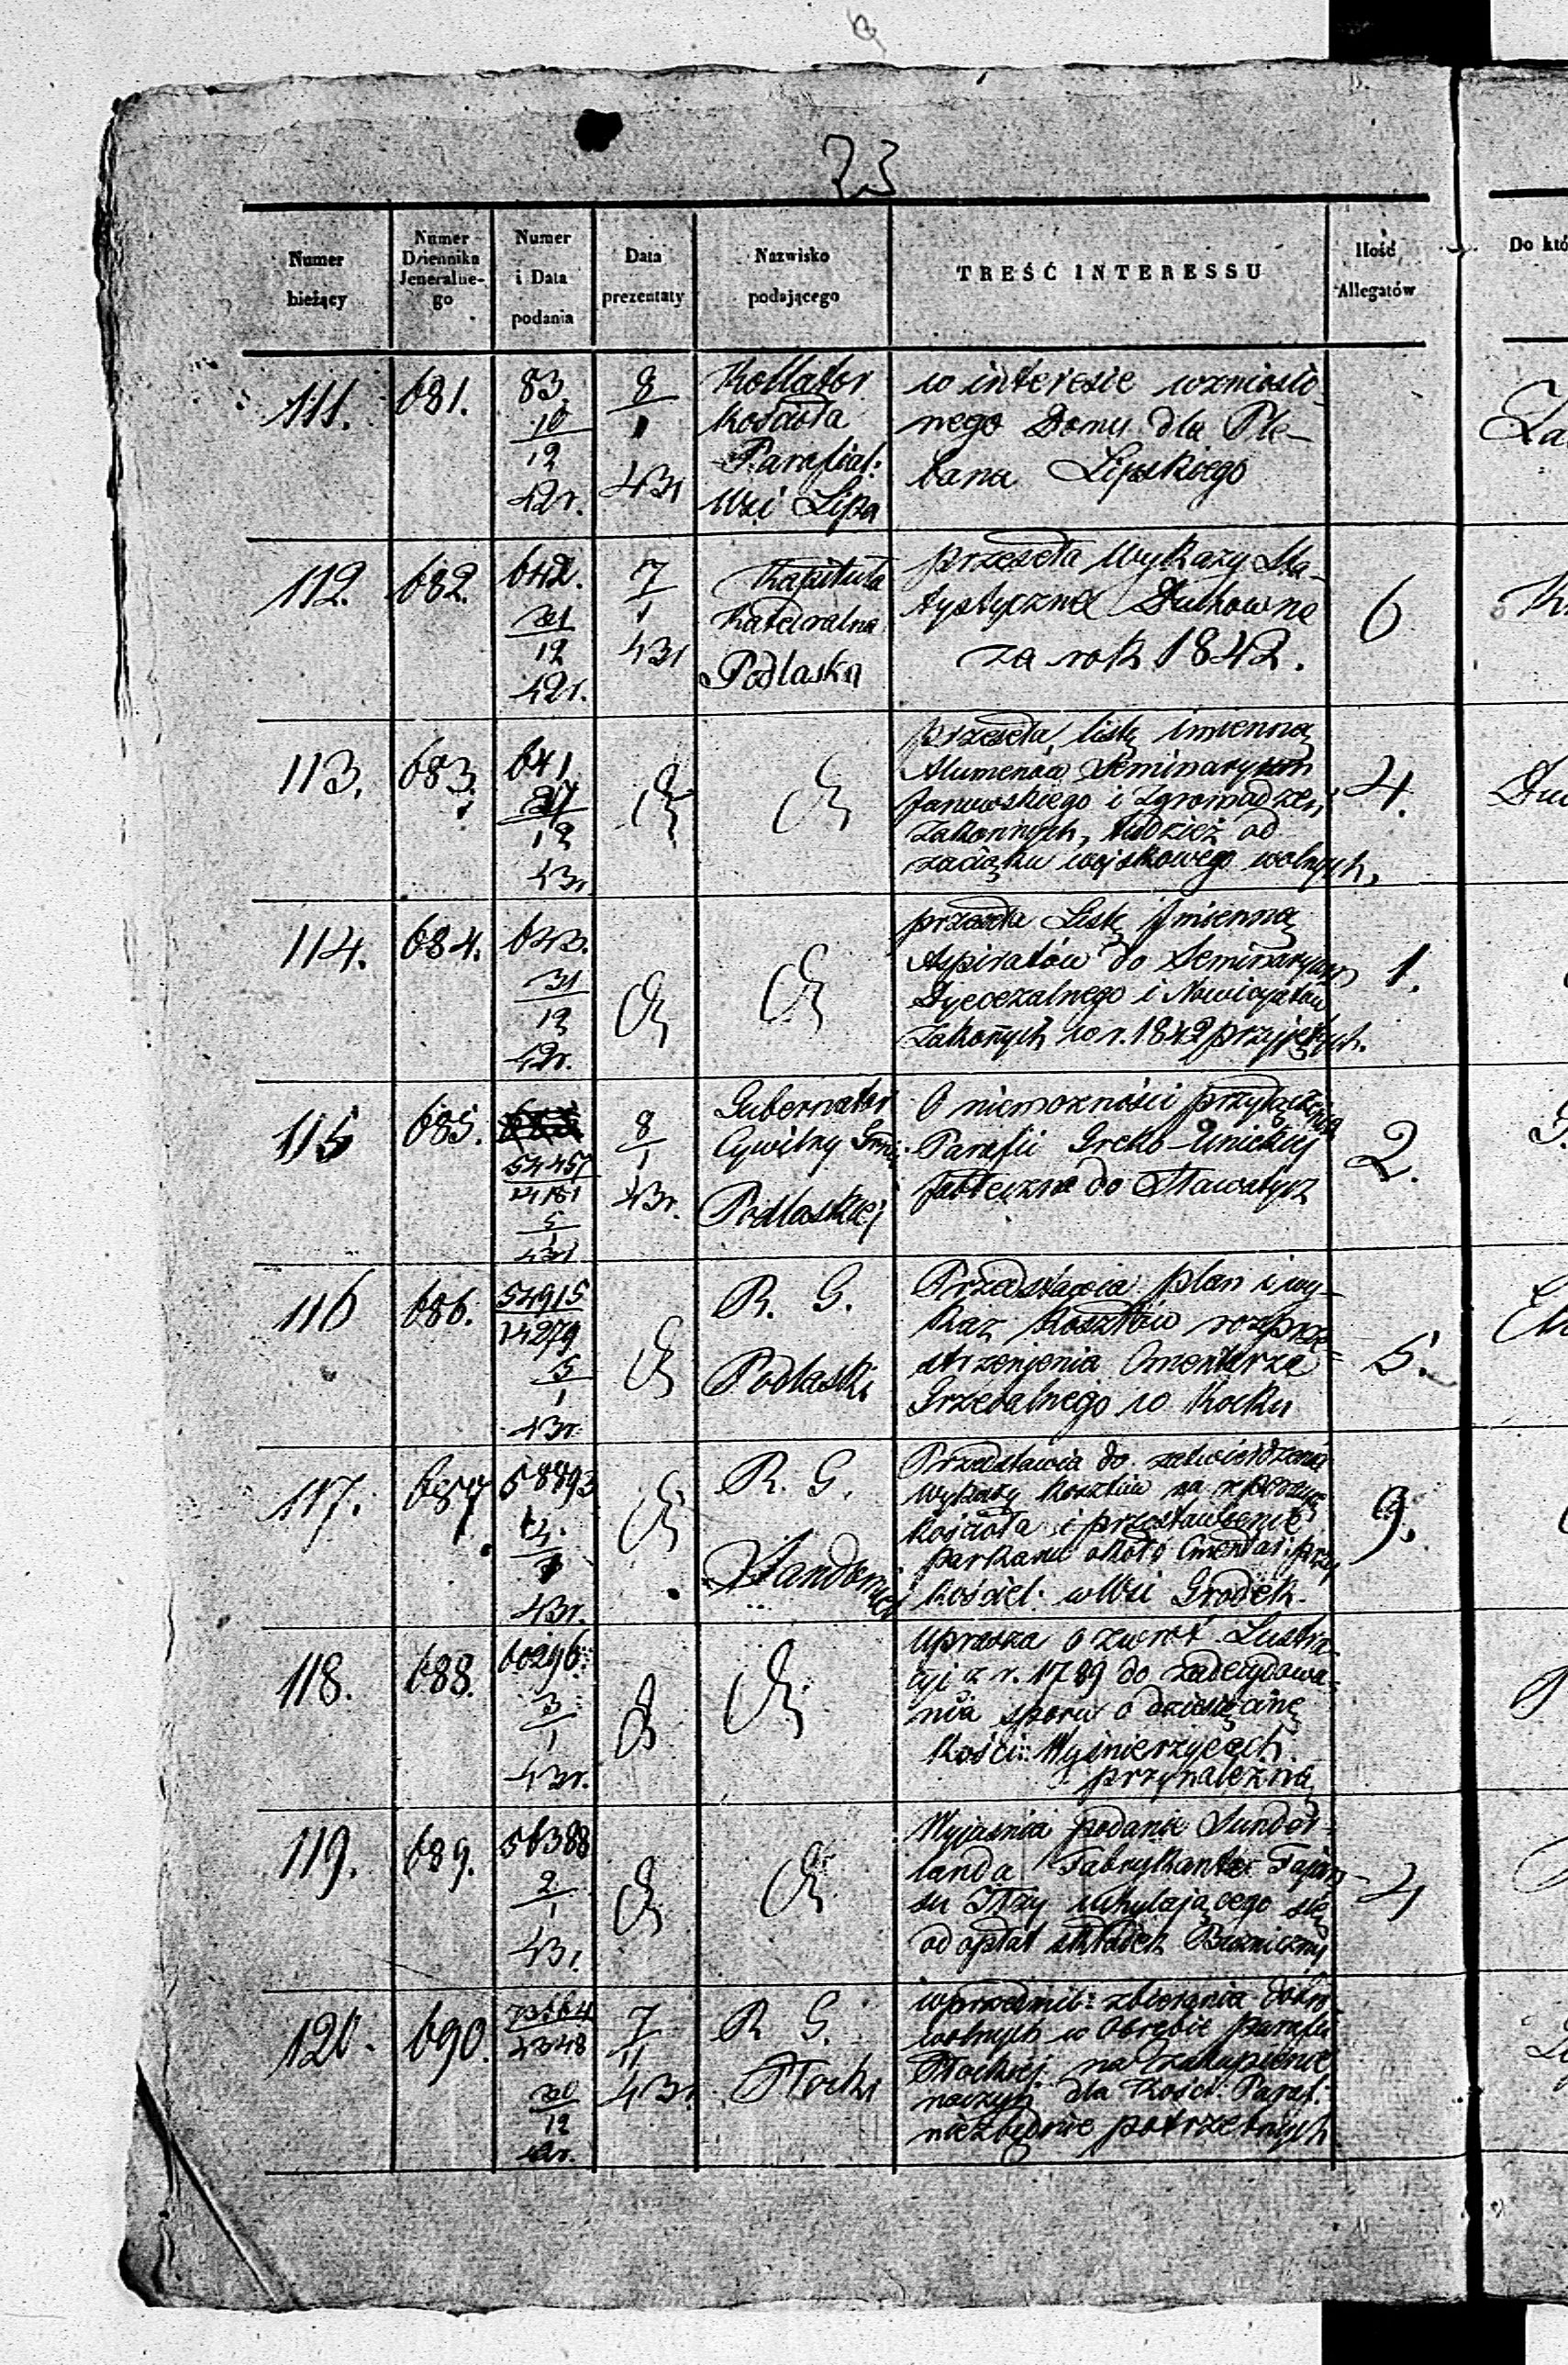 23
Numer bieżący
Numer Dziennika Jeneralne-go
Numer i Data podania
Data prezentaty
Nazwisko podającego
TREŚĆ INTERESSU
Ilość Allegatów
Do któ
111. 681. 83. 10/12 42r. 8/1 43r
Kollator
Kościoła
Parafial:
Wsi Lipa
w interesie wzniesio-
nego Domu dla Ple-
bana Lipskiego
112. 682. 642. 31/12 42r. 7/1 43r
Kapituła
Katedralna
Podlaska
przeseła Wykazy Sta-
tystyczne Duchowne
za rok 1842.
6
113. 683. 641 12 43r.
przeseła listę imienną
Alumnów Seminaryum
Janowskiego i Zgromadzeń
Zakonnych, tudzież od
zaciągu wojskowego wolnych,
4.
114. 684. 643. 31/12 42r.
przeseła Listę Imienną
Aspirantów do Seminaryum
Dyecezalnego i Nowicyatów
Zakonnych w r. 1842 przyjętych.
1.
115 685. 54457 5/1 43r 8/1 43r.
Gubernator
Cywilny
Podlaskiej
O niemożności przyłączenia
Parafii Greko-Unickiej
Jabłeczna do Sławatycz
2.
116 686. 54915/14279 5/1 43r.
R. G.
Podlaski
Przedstawia plan i wy-
kaz kosztów rozprze-
strzenienia Cmentarza
Grzebalnego w Kocku
5.
117. 687. 58893 4/1 43r.
R. G.
Sandomier
Przedstawia do zatwierdzenia
wykazy kosztów na reperacyę
Kościoła i przestawienie
parkanu około Cmentar: przy
Kościel: w Wsi Grodek.
9.
118. 688. 60296 3/1 43r.
Uprasza o zwrot Lustra-
cyi z r. 1789 do zadecydowa-
nia sporu o dziesięcinę
Kości: Wyśmierzycach
przynależną
119. 689. 56388 2/1 43r.
Wyjaśnia podanie Sunder-
landa Fabrykanta Fajan-
su Iłży uchylającego się
od opłat składek Bożniczny
4
120. 690. 73664/4348 30/12 42r. 7/11 43r.
R G.
Płocki
w przedmio: zbierania dobro-
wolnych w obrębie parafii
Płockiej na zakupienie
naczyń dla Kości: Paraf:
niezbędnie potrzebnych